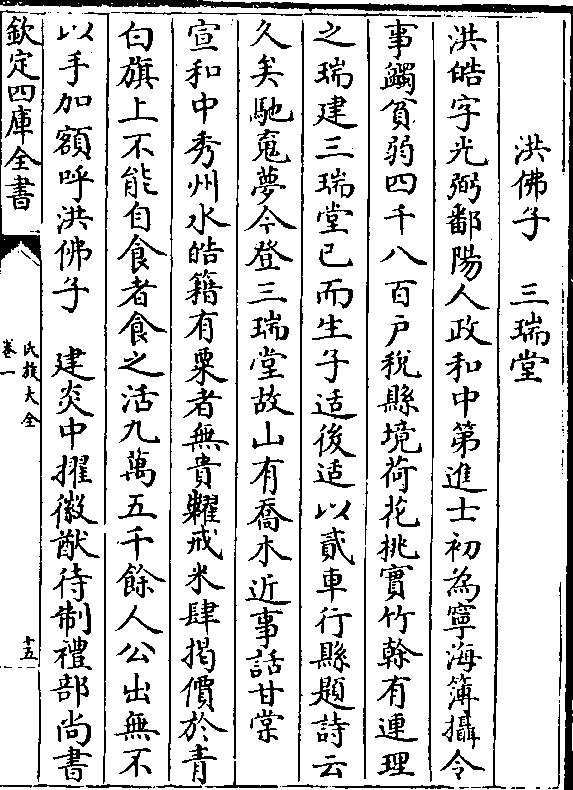 洪佛子　三瑞堂
洪皓字光弼鄱陽人政和中第進士初為寧海簿攝令
事蠲貧弱四千八百戸稅縣境荷花桃實竹榦有連理
之瑞建三瑞堂已而生子适後适以貳車行縣題詩云
久矣馳䰟夢今登三瑞堂故山有喬木近事話甘棠
宣和中秀州水皓籍有粟者無貴糶戒米肆揭價於青
白旗上不能自食者食之活九萬五千餘人公出無不
以手加額呼洪佛子　建炎中擢徽猷待制禮部尚書
欽定四庫全書
氏族大全
卷一
十五